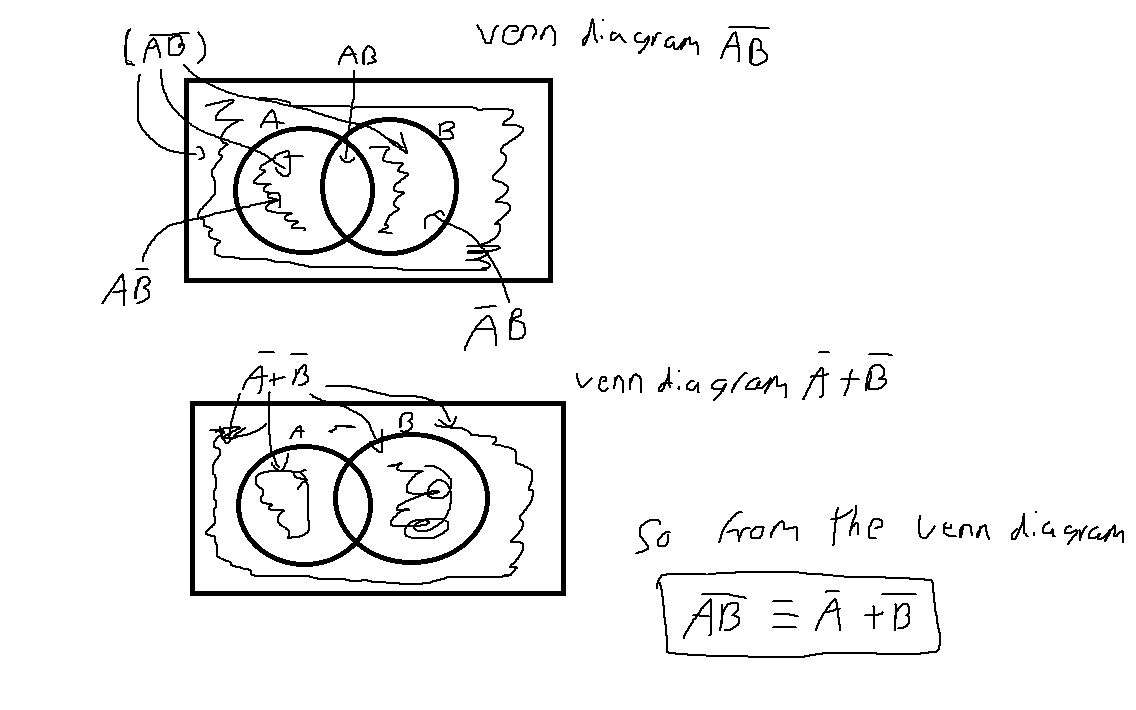 (A̅B̅)
AB
venn diagram A̅B̅
A
B
AB̅
A̅B
A̅+B̅
venn diagram A̅+B̅
A
B
So from the venn diagram
A̅B̅ ≡ A̅+B̅